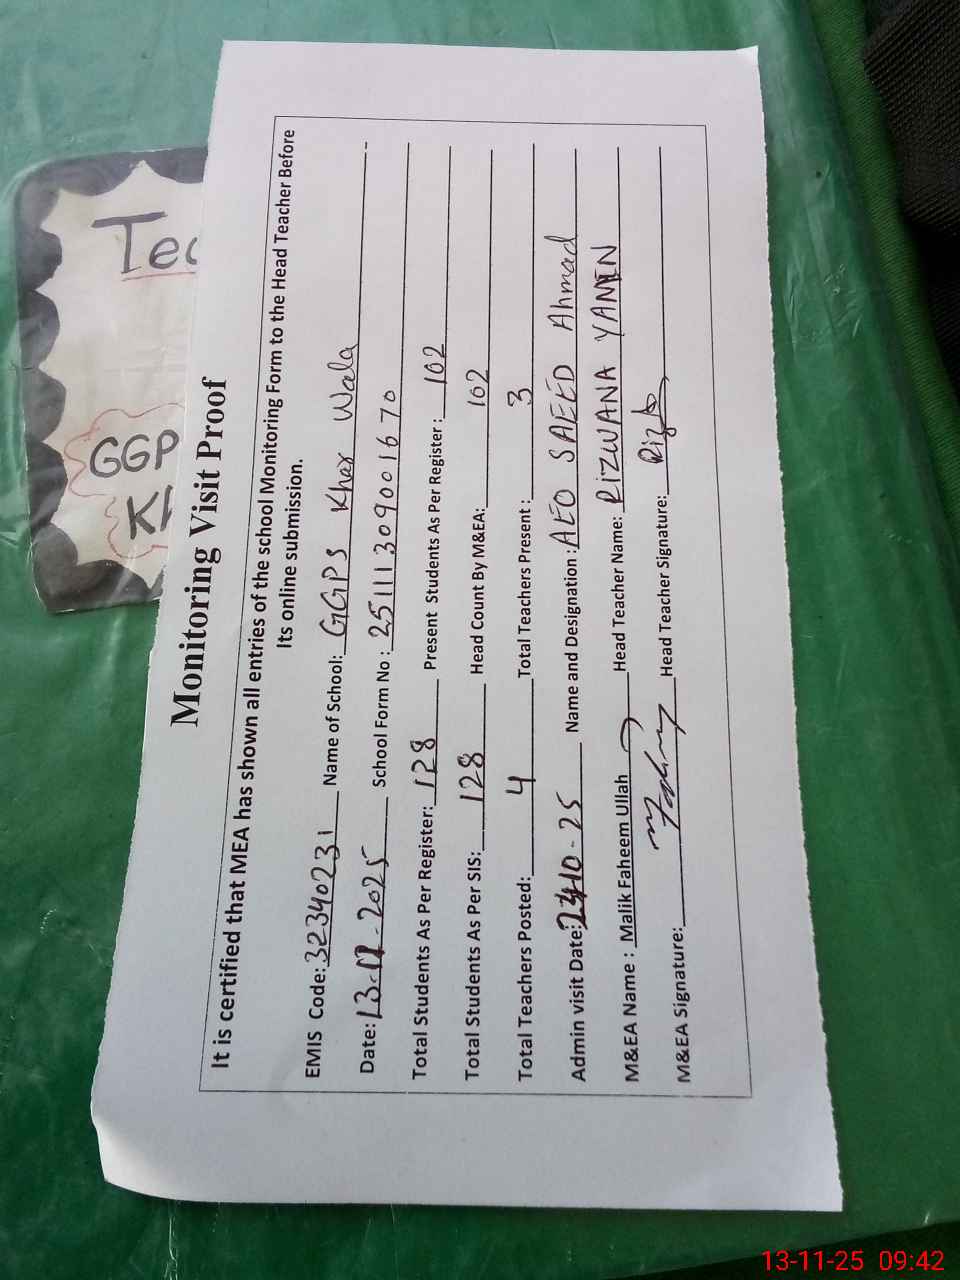 Monitoring Visit Proof
It is certified that MEA has shown all entries of the school Monitoring Form to the Head Teacher Before
Its online submission.
EMIS Code: 32340231 Name of School: GGPS Khar Wala
Date: 13-11-2025 School Form No : 25111309001670
Total Students As Per Register: 128 Present Students As Per Register : 102
Total Students As Per SIS: 128 Head Count By M&EA: 102
Total Teachers Posted: 4 Total Teachers Present : 3
Admin visit Date: -10-25 Name and Designation : AEO SAEED Ahmad
M&EA Name : Malik Faheem Ullah Head Teacher Name: RIZWANA
M&EA Signature: Head Teacher Signature:
Tea
GGP
Kh
13-11-25 09:42